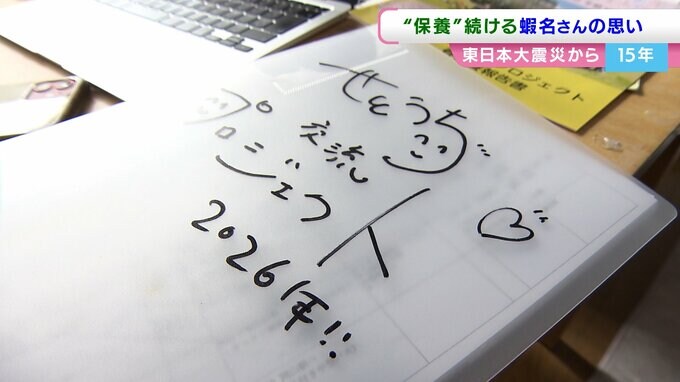 “保養”続ける蝦名さんの思い
東日本大震災から 15年
せとうち
交流
プロジェクト
2026年!!
ロジェクト
報告書